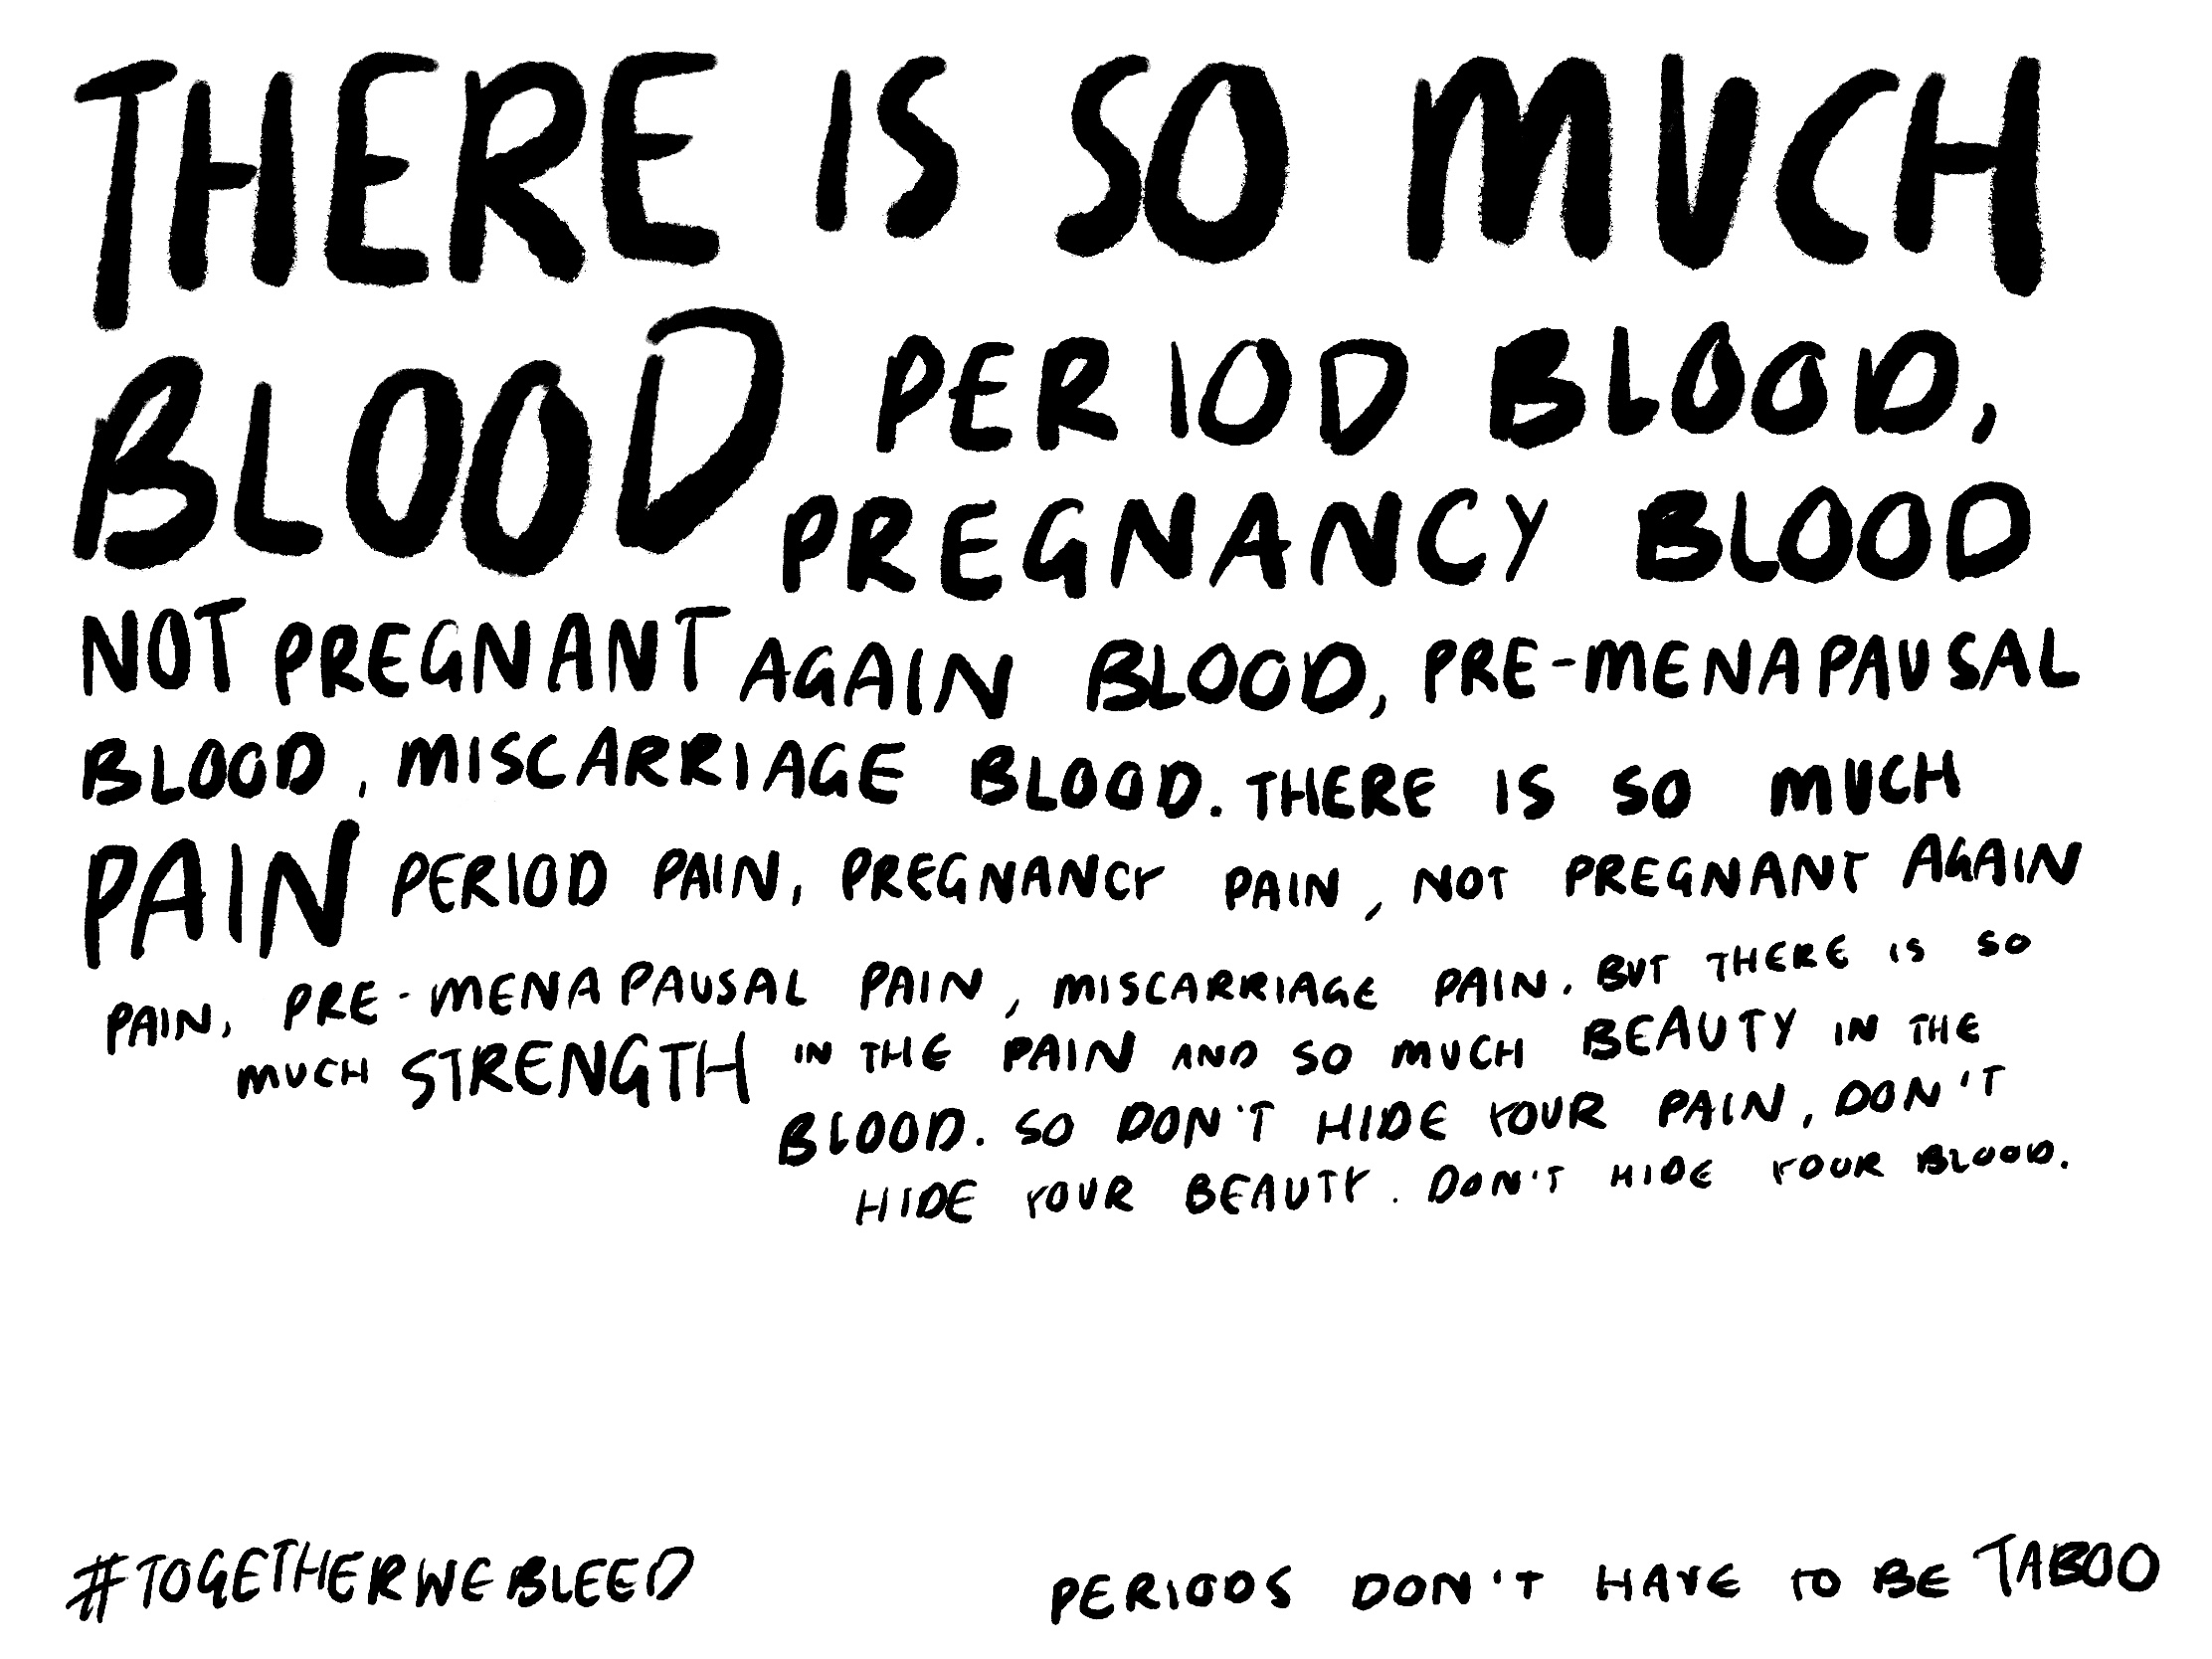 THERE IS SO MUCH
BLOOD PERIOD BLOOD,
PREGNANCY BLOOD
NOT PREGNANT AGAIN BLOOD, PRE-MENAPAUSAL
BLOOD, MISCARRIAGE BLOOD. THERE IS SO MUCH
PAIN PERIOD PAIN, PREGNANCY PAIN, NOT PREGNANT AGAIN
PAIN, PRE-MENAPAUSAL PAIN, MISCARRIAGE PAIN. BUT THERE IS SO
MUCH STRENGTH IN THE PAIN AND SO MUCH BEAUTY IN THE
BLOOD. SO DON'T HIDE YOUR PAIN, DON'T
HIDE YOUR BEAUTY. DON'T HIDE YOUR BLOOD.
#TOGETHERWEBLEED
PERIODS DON'T HAVE TO BE TABOO